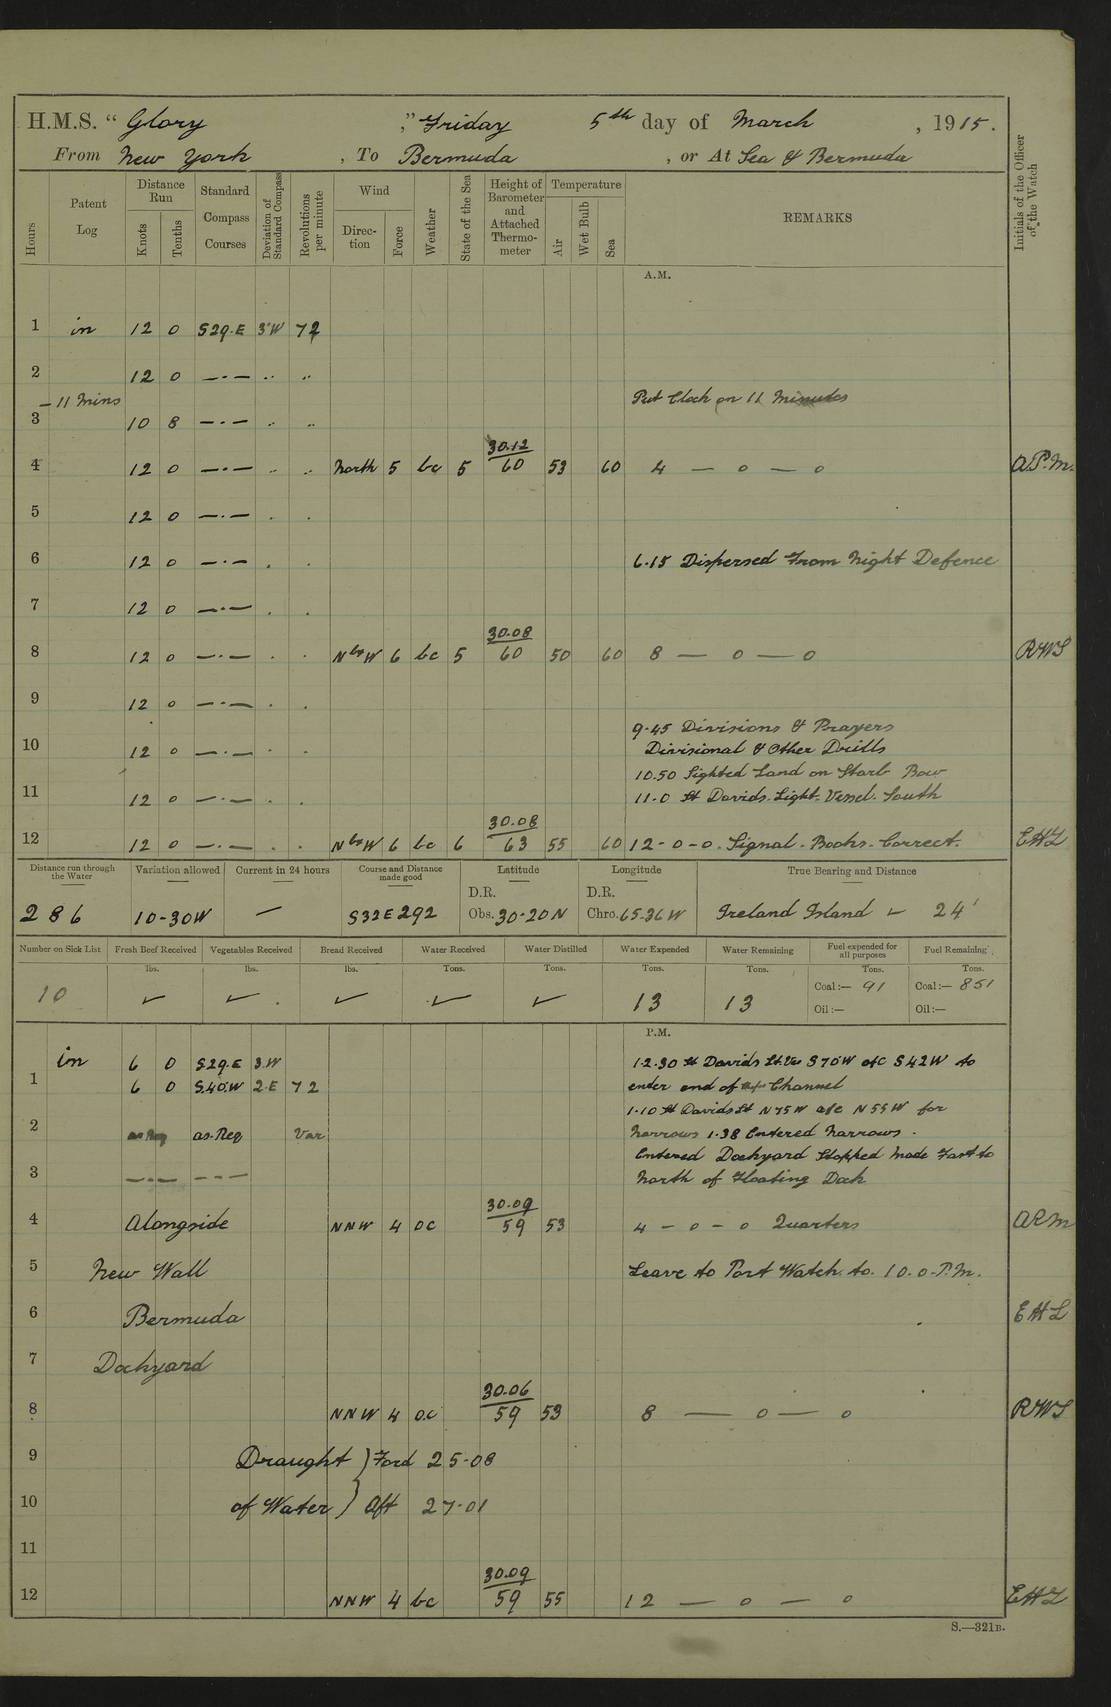 H.M.S. " Glory ," Friday 5th day of March , 1915.
From New York , To Bermuda , or At Sea & Bermuda
Hours
Patent Log
Distance Run
Knots
Tenths
Standard Compass Courses
Deviation of Standard Compass
Revolutions per minute
Wind
Direction
Force
Weather
State of the Sea
Height of Barometer and Attached Thermometer
Temperature
Air
Wet Bulb
Sea
REMARKS
Initials of the Officer of the Watch
A.M.
1 in 12 0 S29.E 3°W 72
2 12 0 —·— .. ..
— 11 mins Put Clock on 11 Minutes
3 10 8 —·— .. ..
30.12
4 12 0 —·— .. .. North 5 bc 5 60 53 60 4 — 0 — 0 A.P.M.
5 12 0 —·— . .
6 12 0 —·— . . 6.15 Dispersed From Night Defence
7 12 0 —·— . .
30.08
8 12 0 —·— . . NbyW 6 bc 5 60 50 60 8 — 0 — 0 RWS
9 12 0 —·— . .
9.45 Divisions & Prayers
10 12 0 —·— . . Divisional & Other Drills
10.50 Sighted Land on Starb Bow
11 12 0 —·— . . 11.0 St Davids. Light. Vessel. South
30.08
12 12 0 —·— . . NbyW 6 bc 6 63 55 60 12 - 0 - 0. Signal. Books. Correct. EHL
Distance run through the Water
Variation allowed
Current in 24 hours
Course and Distance made good
Latitude
Longitude
True Bearing and Distance
D.R. D.R.
286 10-30W — S32E 292 Obs. 30-20N Chro. 65.36W Ireland Island ✓ 24'
Number on Sick List
Fresh Beef Received
Vegetables Received
Bread Received
Water Received
Water Distilled
Water Expended
Water Remaining
Fuel expended for all purposes
Fuel Remaining
lbs. lbs. lbs. Tons. Tons. Tons. Tons. Tons. Tons.
10 ✓ ✓ ✓ ✓ ✓ 13 13 Coal:— 91 Coal:— 851
Oil:— Oil:—
P.M.
in 6 0 S29.E 3.W 1.2.30 St Davids Lt.Ves S70W a/c S42W to
1 6 0 S.40.W 2.E 72 enter end of Channel
1.10 St Davids Lt N75W a/c N55W for
2 as.Req Var Narrows 1.38 Entered Narrows.
Entered Dockyard Stopped Made Fast to
3 —·— —·— North of Floating Dock
30.09
4 Alongside NNW 4 oc 59 53 4 - 0 - 0 Quarters APM
5 New Wall Leave to Port Watch. to. 10.0.P.M.
6 Bermuda EHL
7 Dockyard
30.06
8 NNW 4 oc 59 53 8 — 0 — 0 RWS
9 Draught } Ford 25-08
10 of Water } Aft 27-01
11
30.09
12 NNW 4 bc 59 55 12 — 0 — 0 EHL
S.—321B.